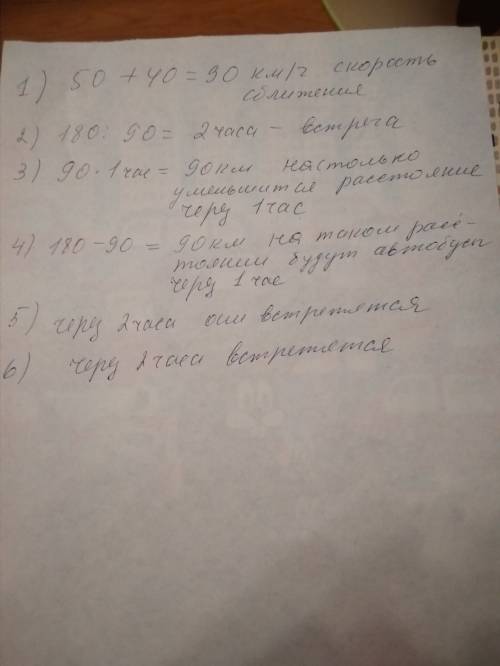 1) 50 + 40 = 90 км/ч скорость
сближения
2) 180 : 90 = 2 часа - встреча
3) 90 · 1 час = 90 км настолько
уменьшится расстояние
через 1 час
4) 180 - 90 = 90 км на таком расс-
тоянии будут автобусы
через 1 час
5) через 2 часа они встретятся
6) через 2 часа встретятся